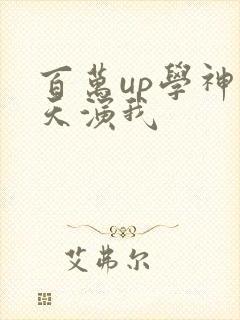 百萬up學神
天演我
艾弗尔